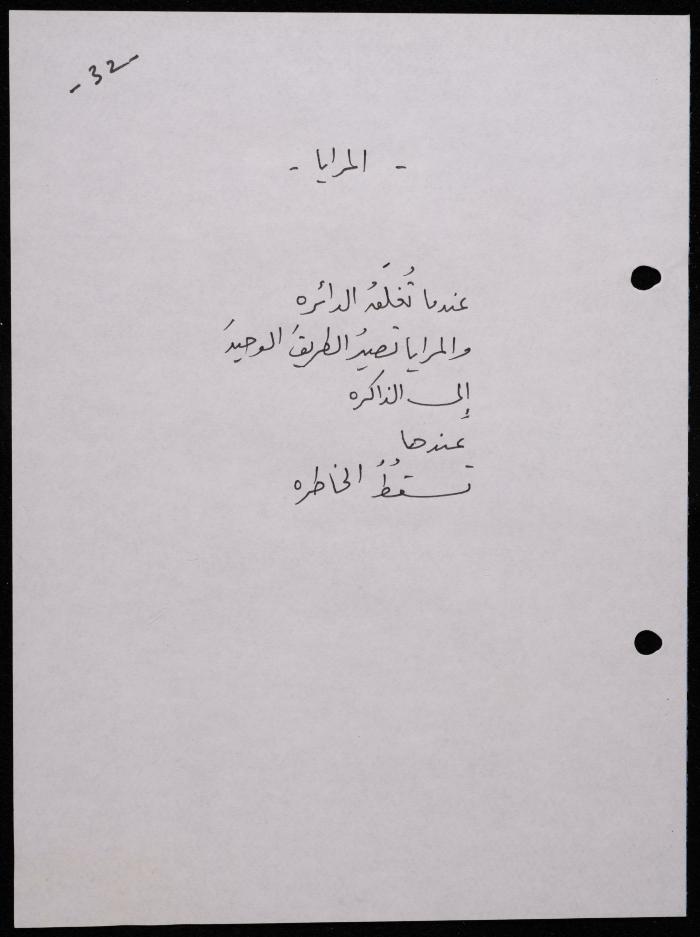 -32-
- المرايا -
عندما تُغلَقُ الدائره
والمرايا تصيرُ الطريقَ الوحيدَ
إلى الذاكره
عندها
تسقطُ الخاطره